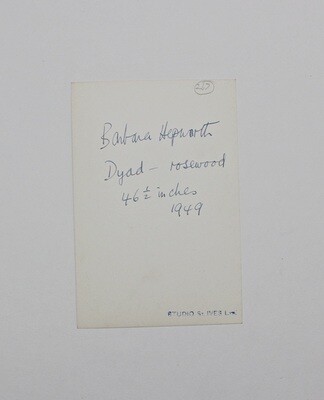 Barbara Hepworth
Dyad – rosewood
46 ½ inches
1949
STUDIO St IVES Ltd.